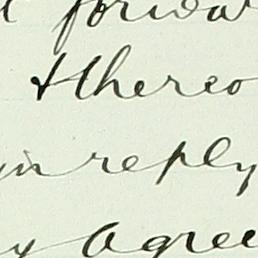 forwar
& thereo
in reply
agree